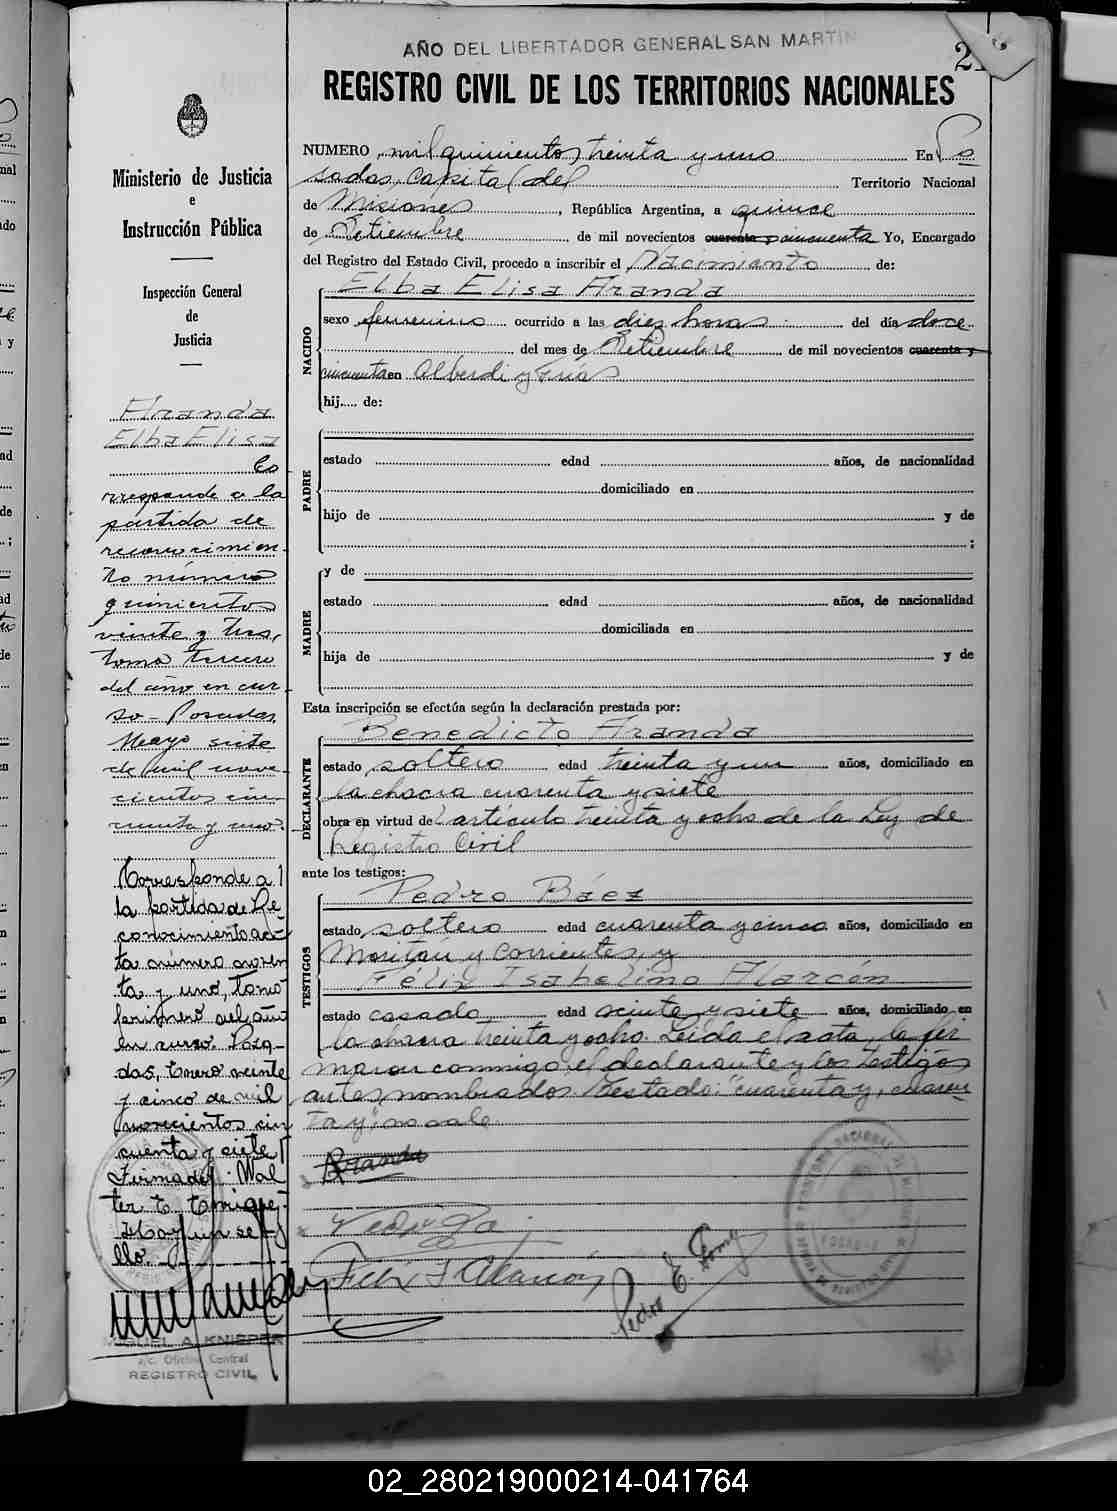 AÑO DEL LIBERTADOR GENERAL SAN MARTIN
REGISTRO CIVIL DE LOS TERRITORIOS NACIONALES
Ministerio de Justicia
e
Instrucción Pública
Inspección General
de
Justicia
Aranda
Elba Elisa
Co
rresponde a la
partida de
reconocimien-
to número
quinientos
veinte y tres,
tomo tercero
del año en cur
so - Posadas,
Mayo siete
de mil nove-
cientos cin-
cuenta y uno.
Corresponde a
la partida de Re
conocimiento ac-
ta número noven
ta y uno, tomo
primero del año
en curso. Posa-
das, Enero veinte
y cinco de mil
novecientos cin
cuenta y siete
Firmado: Wal
ter E.
Hay un se
llo.
MIGUEL A. KNIEPER
a/c. Oficina Central
REGISTRO CIVIL
NUMERO mil quinientos treinta y uno En Po
sadas, Capital del Territorio Nacional
de Misiones, República Argentina, a quince
de Setiembre de mil novecientos cuarenta y cincuenta Yo, Encargado
del Registro del Estado Civil, procedo a inscribir el Nacimiento de:
NACIDO
Elba Elisa Aranda
sexo femenino ocurrido a las dies horas del día doce
del mes de Setiembre de mil novecientos cuarenta y
cincuenta en Alberdi y Frías
hij.... de:
PADRE
estado edad años, de nacionalidad
domiciliado en
hijo de y de
;
MADRE
y de
estado edad años, de nacionalidad
domiciliada en
hija de y de
Esta inscripción se efectúa según la declaración prestada por:
DECLARANTE
Benedicto Aranda
estado soltero edad treinta y un años, domiciliado en
la chacra cuarenta y siete
obra en virtud del artículo treinta y ocho de la Ley de
Registro Civil
ante los testigos:
TESTIGOS
Pedro Báez
estado soltero edad cuarenta y cinco años, domiciliado en
Moritán y Corrientes, y
Félix Isabelino Alarcón
estado casado edad veinte y siete años, domiciliado en
la chacra treinta y ocho. Leída el acta, la fir
maron conmigo, el declarante y los testigos
antes nombrados. Testado: "cuarenta y, cuaren
ta y", no vale.
Aranda
Felix I Alarcón
Pedro E. Gomez
02_280219000214-041764